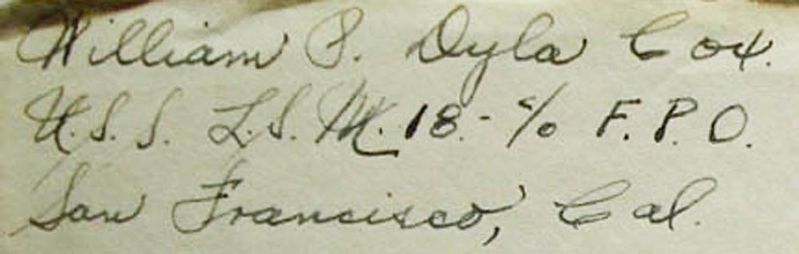 William P. Dyla Cox.
U.S.S. L.S.M. 18.- c/o F.P.O.
San Francisco, Cal.